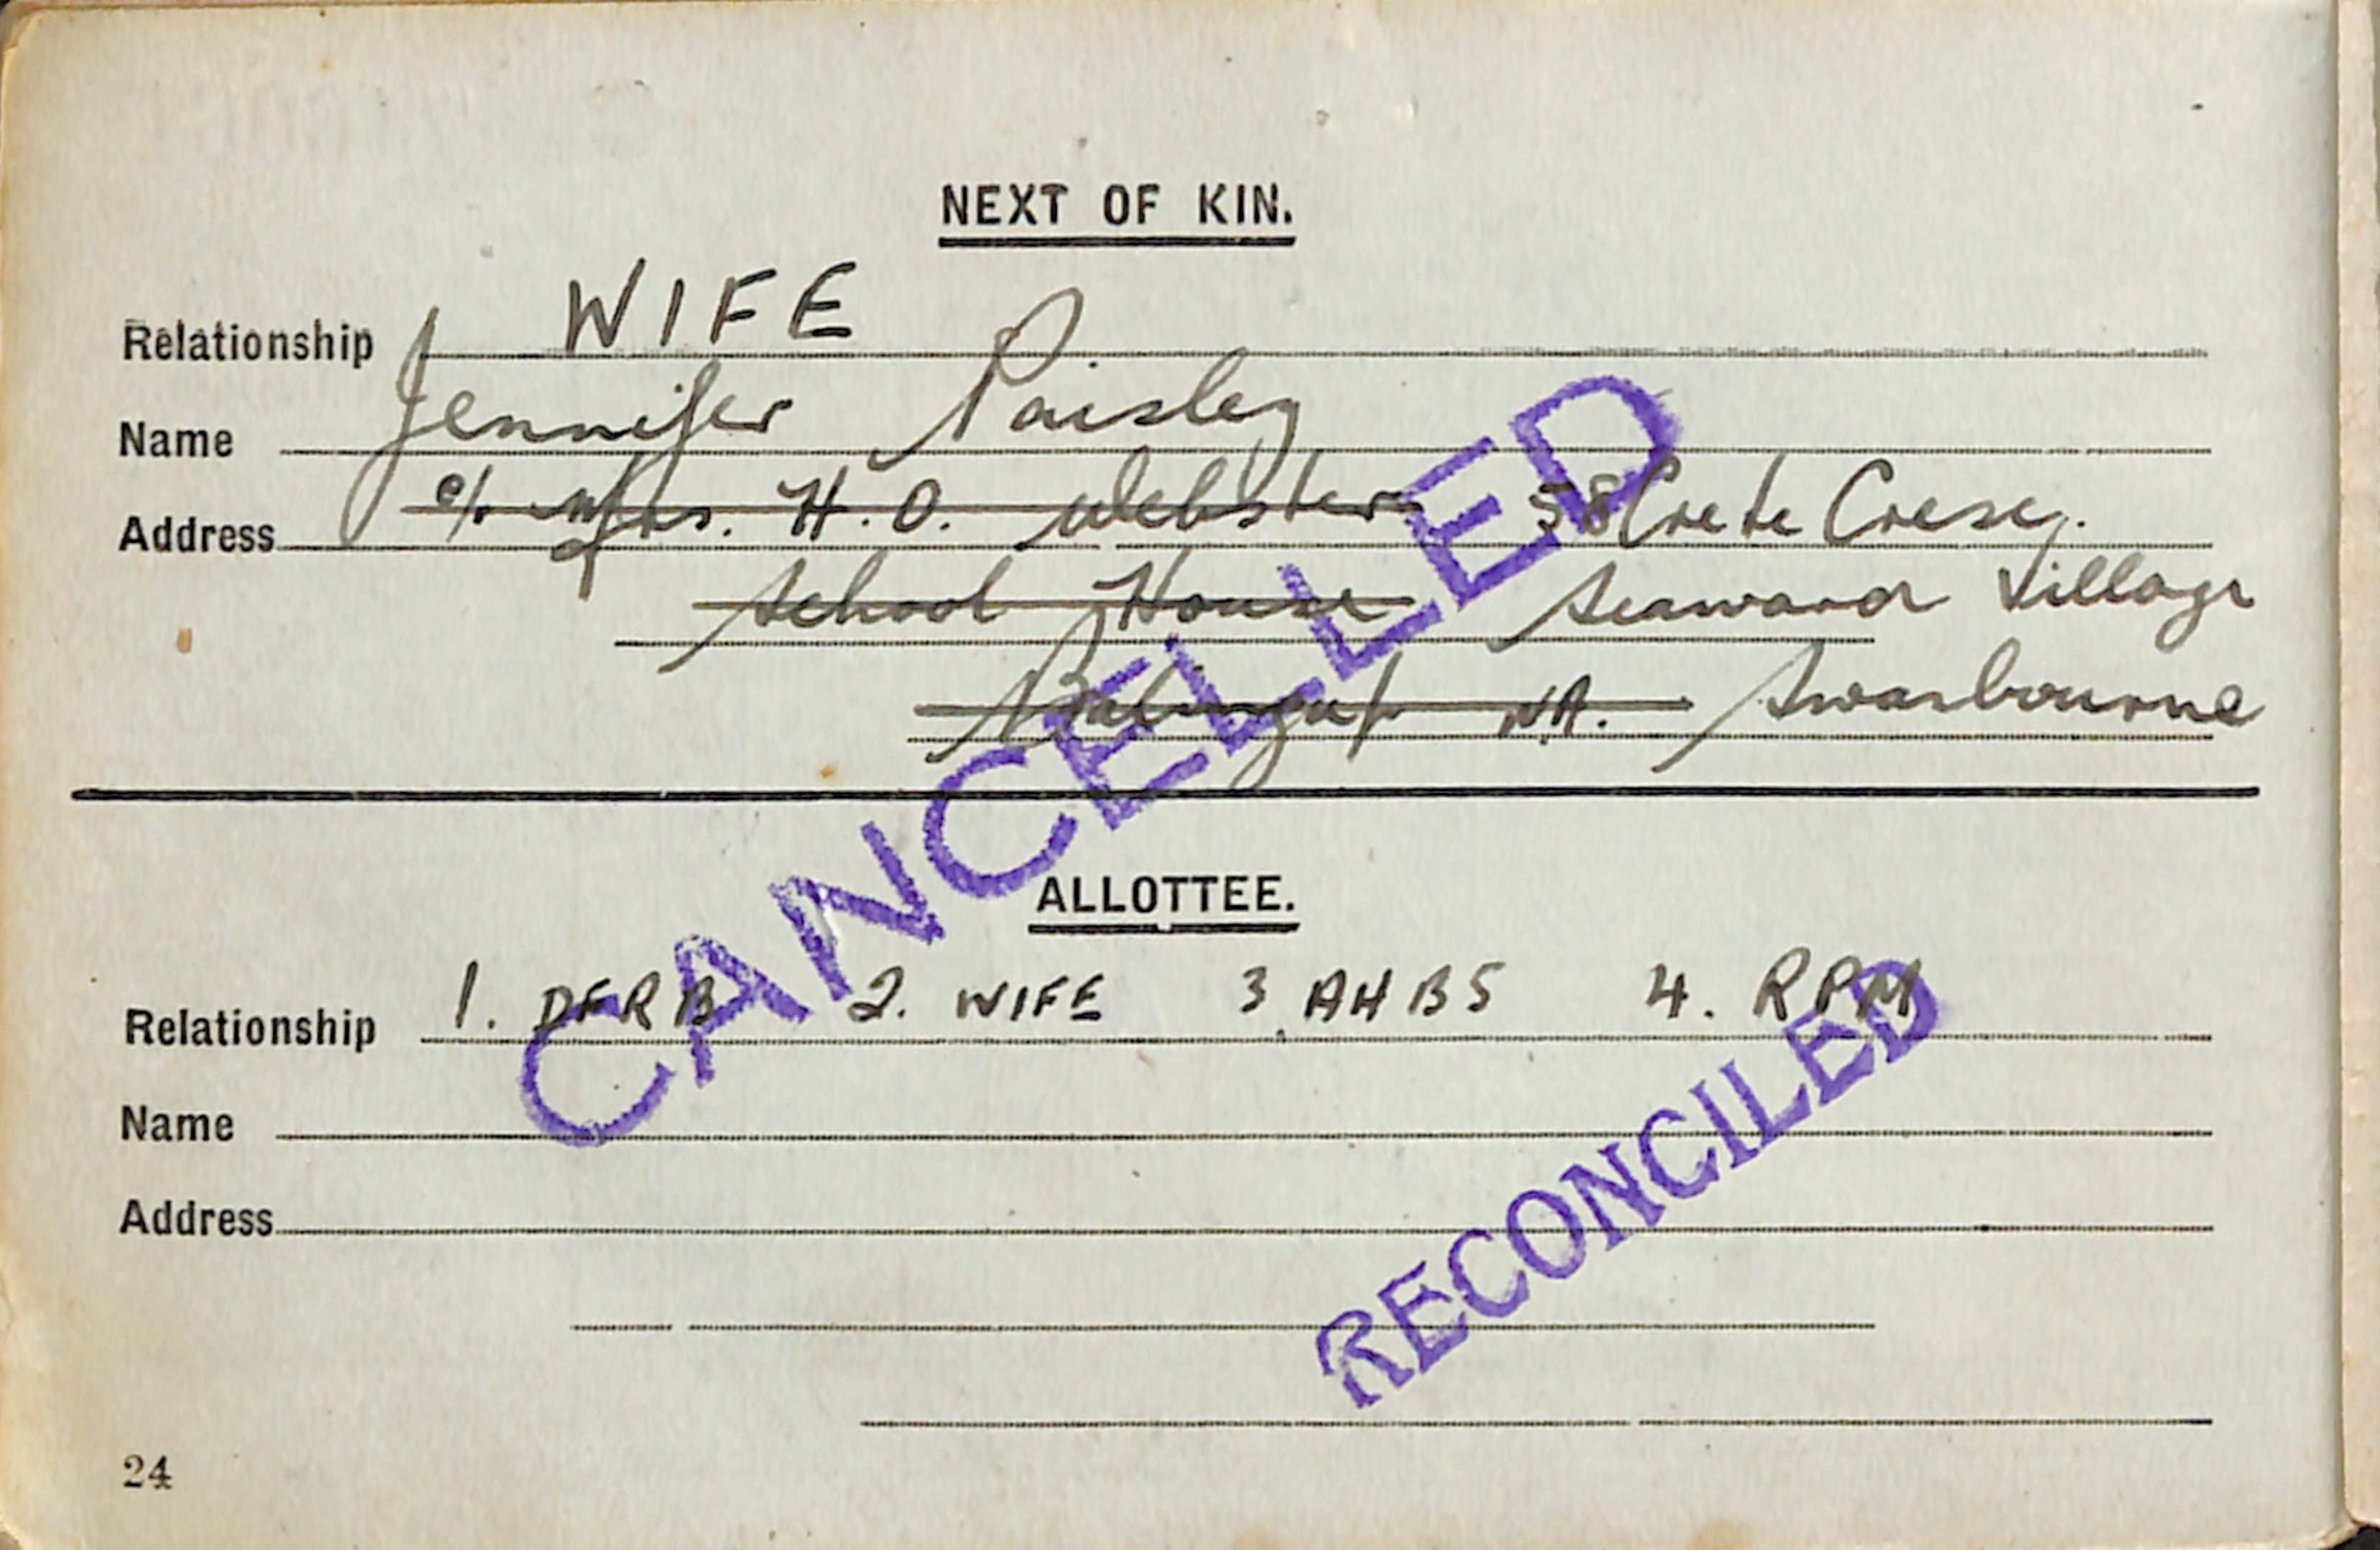 NEXT OF KIN.
Relationship WIFE
Name Jennifer Paisley
Address c/. Mrs. H.O. Webster 58 Crete Cresc.
School House Seaward Village
Balingup WA. Swanbourne
CANCELLED
ALLOTTEE.
Relationship 1. DFRB 2. WIFE 3. AHBS 4. RPM
Name
Address
RECONCILED
24